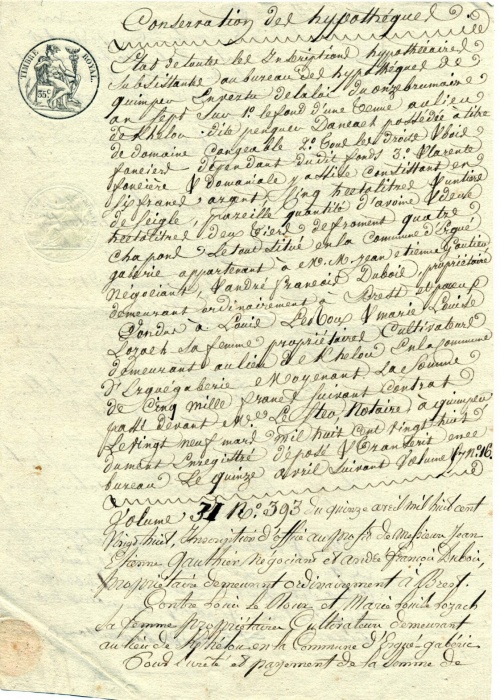 Conservation des hypothèques
TIMBRE ROYAL
35c
Etat de toutes les Inscriptions hypothécaires
Subsistantes au bureau des hypothèques de
quimper En vertu de la loi du onze brumaire
an Sept Sur 1º le fond d'une tenue au lieu
de Khelou dite penquer Daneach possedée à titre
de domaine Congeable 2º tous les droits & bois
fonciers dépendant dudit fonds 3º & la rente
foncière & Domaniale y assise Consistant en
Six francs argent, Cinq hectolitres
de Seigle, pareille quantité d'avoine & deux
hectolitres deux tiers de froment quatre
Chapons Le tout Situé en la Commune d'Ergué
gaberic appartenant à M. M. jean etienne Gautier
Négociant, & andré françois Dubois, propriétaire
demeurant ordinairement à Brest
Vendus à Louis Le Roux & marie Louise
Lozach sa femme propriétaires Cultivateurs
demeurant au lieu de Khelou En la Commune
d'Erguégaberic Moyenant La Somme
de Cinq mille francs Suivant Contrat
passé devant Me Le Notaire à quimper
Le vingt neuf mars mil huit Cent vingt huit
dument Enregistré déposé & Transcrit en ce
bureau Le quinze avril Suivant Volume Nº 16.
Volume 31 Nº 393 du quinze avril mil huit cent
vingt huit. Inscription d'office au profit de Messieurs Jean
Etienne Gauthier Négociant et andré François Dubois,
propriétaire demeurant ordinairement à Brest.
Contre Louis Le Roux et Marie Louise Lozach
sa femme propriétaires Cultivateurs demeurant
au lieu de Khelou en la Commune d'Ergué-gabéric
Pour Sureté et payement de la Somme de